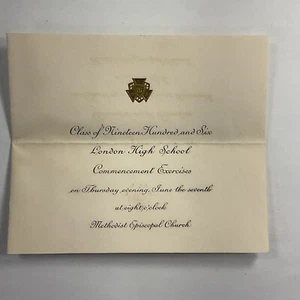 Class of Nineteen Hundred and Six
London High School
Commencement Exercises
on Thursday evening, June the seventh
at eight o'clock
Methodist Episcopal Church